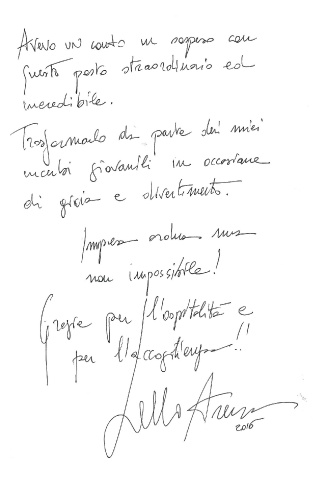 Avevo un conto in sospeso con
questo posto straordinario ed
incredibile.
Trasformarlo da parte dei miei
incubi giovanili in occasione
di gioia e divertimento.
Impresa ardua ma
non impossibile!
Grazie per l'ospitalità e
per l'accoglienza!!
Lello Arena
2016